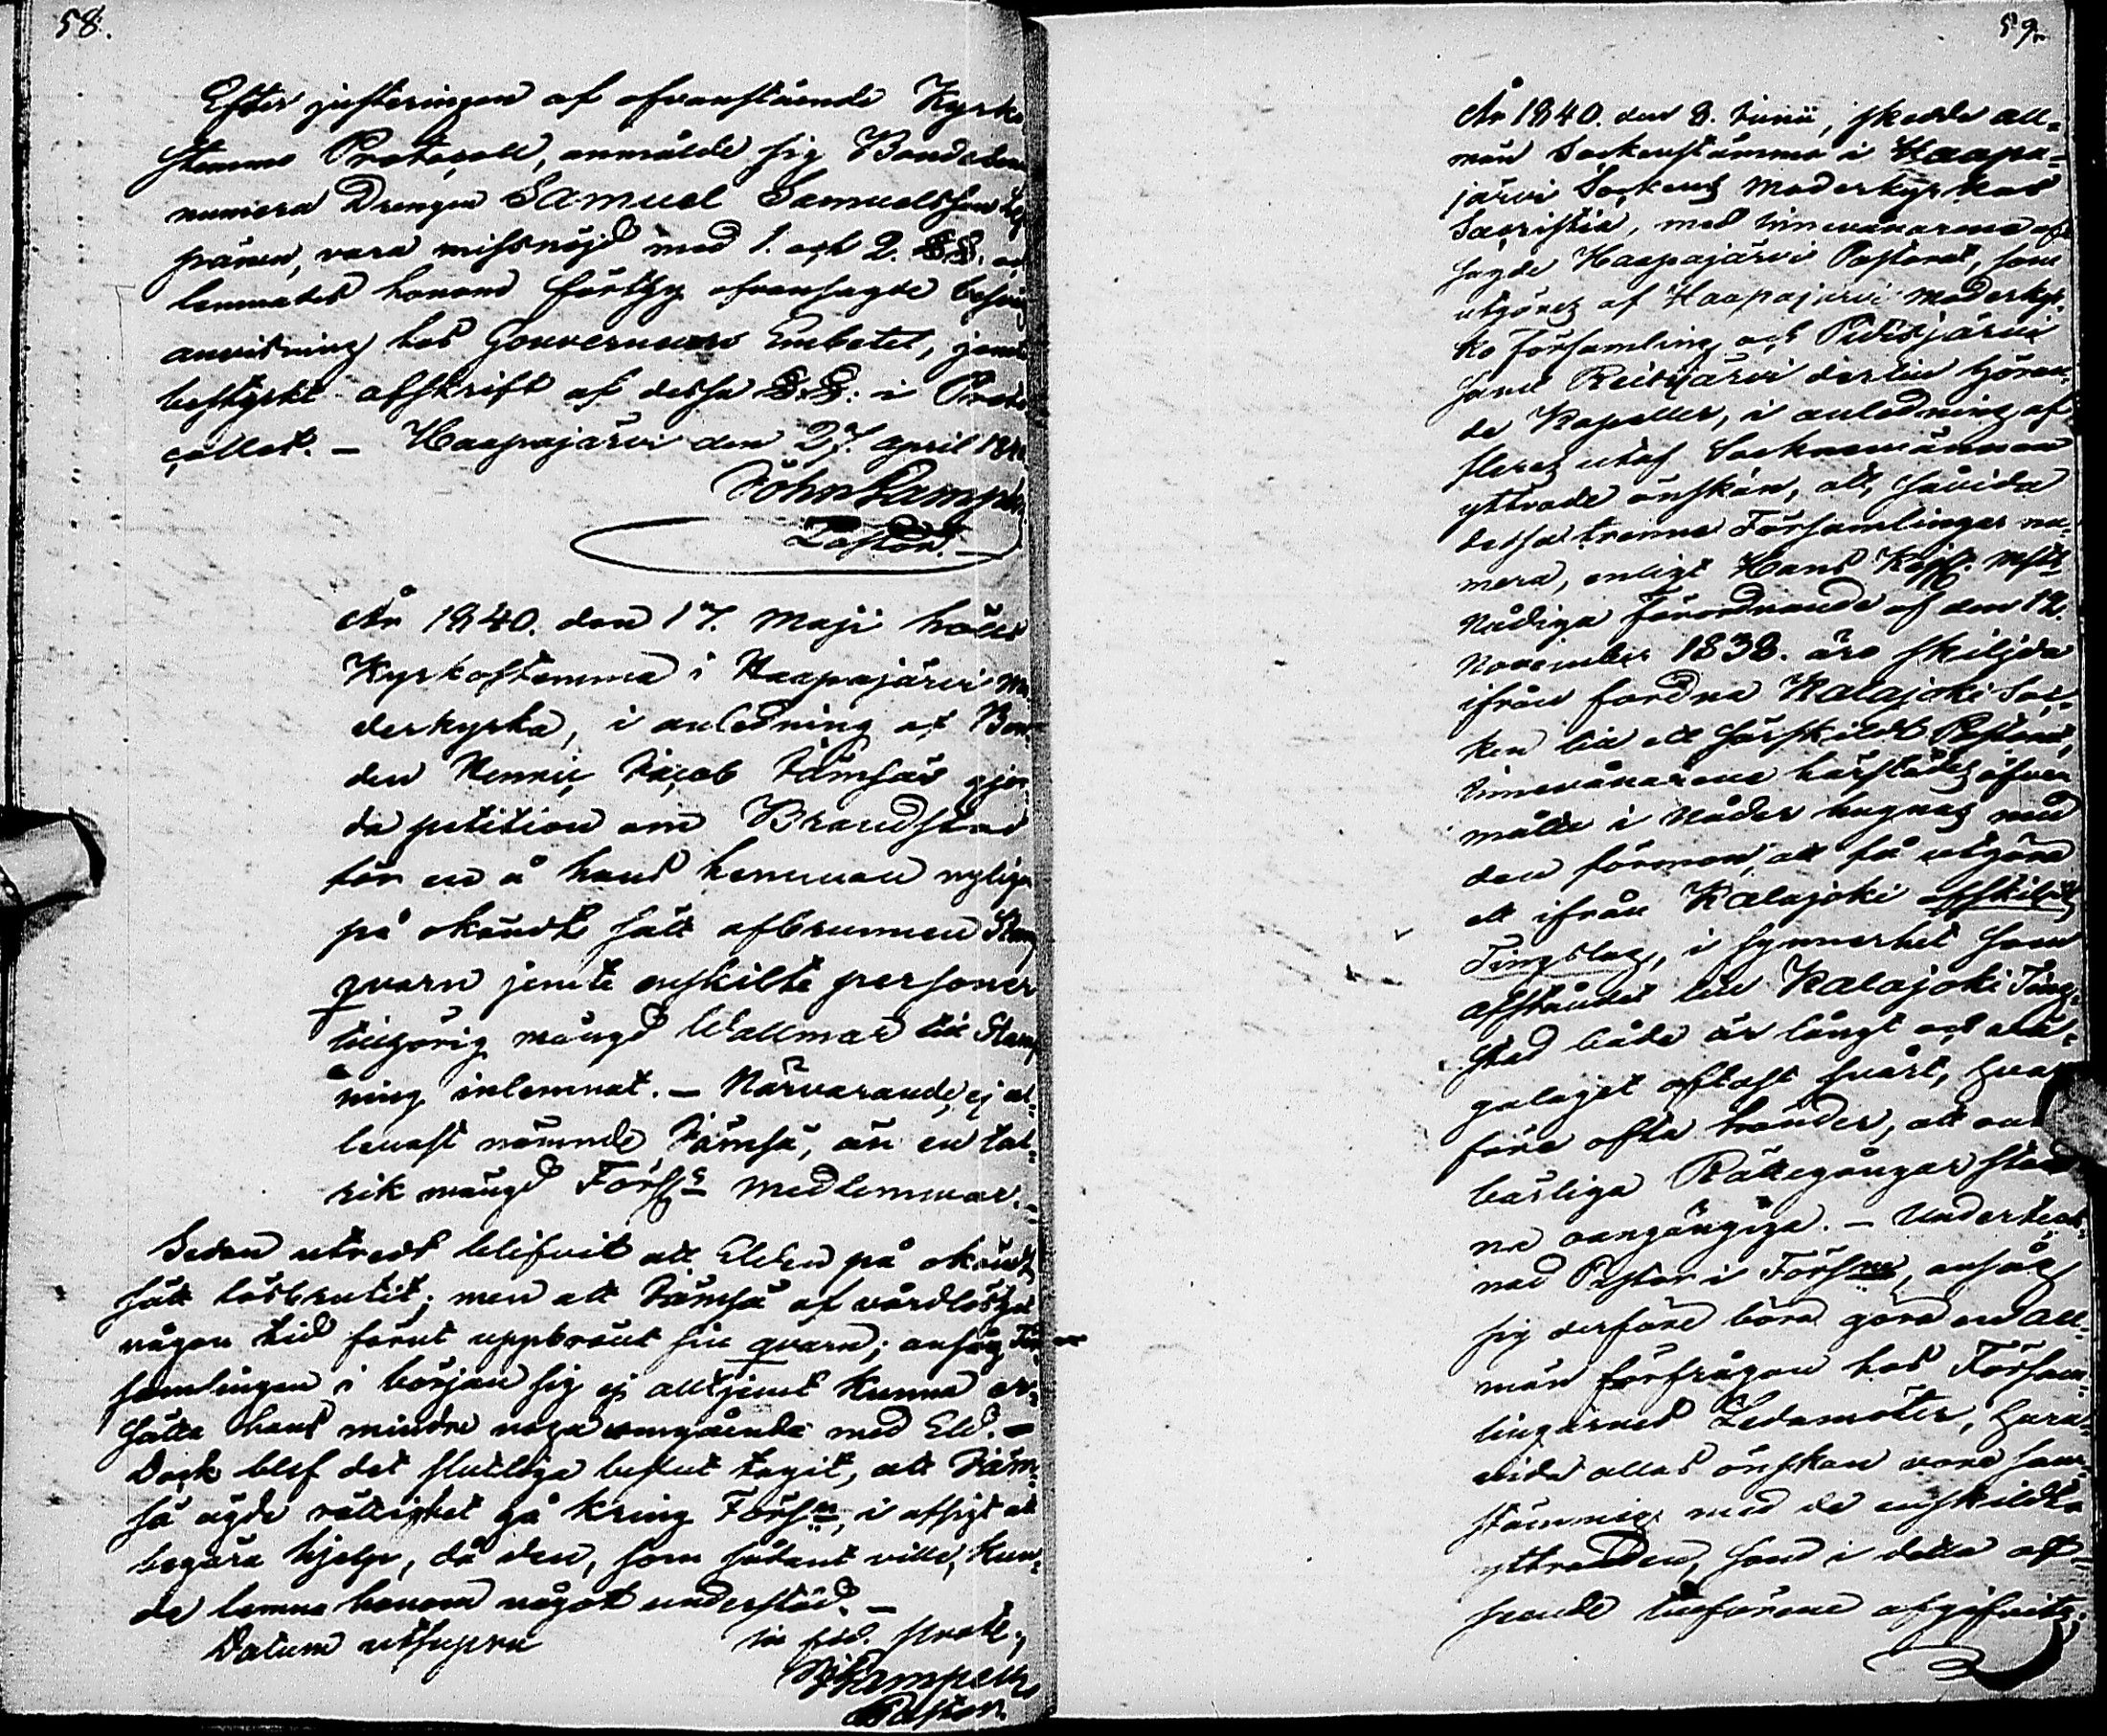 58.
Efter justeringen af ofvanstående Kyrko
stemmo Protocoll, anmälde sig Bonde
numera Drengen Samuel Samuelsson
vara missnöjd med 1. och 2. §§.
lemnades honom förthy ofvansagde
anvisning hos Gouverneurs Embetet, jemte
bestyrkt afskrift af dessa §.§. i Proto
collet. – Haapajärvi den 27. April 1840
Joh. Lampén
Pastor. –
År 1840. den 17. Maji hölls
Kyrkostemma i Haapajärvi Mo
derkyrka, i anledning af Bon
den Jacob Jämsäs gjor
da petition om Brandstod
för en å hans hemman nyligen
på okändt sätt afbrunnen Stamp
qvarn jemte enskilte personer
tillhörig mängd Wallmar till Stamp
ning inlemnat. – Närvarande, ej al-
lenast nämnde Jämsä, än en tal-
rik mängd Förs:s Medlemmar. –
Sedan utredt blifvit att Elden på okändt
sätt lösbrutit; men att Jämsä af vårdlöshet
någon tid förut uppbränt sin qvarn; ansåg För
samlingen i början sig ej alltjemt kunna er-
sätta hans mindre noga omgående med Eld. –
Dock blef det slutliga beslut tagit, att Jäm-
sä ägde rättighet gå kring Förs:n, i afsigt at
begära hjelp, då den, som sådant ville, kun-
de lemna honom något understöd. –
Datum utsupra
In fid. prot.
J. Lampén
Pastor.
59.
År 1840. den 8. Junii, skedde all-
män Sockenstämma i Haapa-
järvi Sockens Moderkyrkas
Sacristia, med Innevånarena af
sagde Haapajärvi Pastorat, som
utgöres af Haapajärvi Moderkyr-
ko Församling och Pidisjärvi
samt Reisjärvi dertill höran-
de Kapeller, i anledning af
fleres utaf Socknemännen
yttrade önskan, att, såvida
dessa trenne Församlingar nu-
mera, enligt Hans Kejs. Mjts
Nådiga Förordnande af den 12.
November 1838. äro skiljda
ifrån fordna Kalajoki Soc-
ken till ett särskildt Pastorat,
Innevånarene härstädes
måtte i Nåder hugnas med
den förmon, att få utgöra
ett ifrån Kalajoki afskildt
Tingslag, i synnerhet som
afståndet till Kalajoki Ting-
stad både är långt och
oftast svårt, hvar
före ofta händer, att
Rättegångar
– Underteck-
nad Pastor i Förs:ne, ansåg
sig derföre böra göra en all-
män förfrågan hos Försam-
lingarnes Ledamöter, huru-
vida allas önskan vore sam-
stämmig med de enskildta
yttranden, som i detta af-
seende tillförene afgifvits.